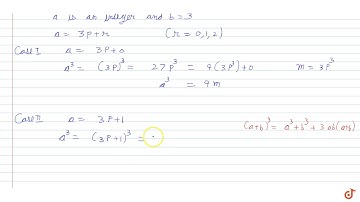 a is an integer and b = 3
a = 3p + r (r = 0, 1, 2)
Case I a = 3p + 0
a³ = (3p)³ = 27p³ = 9(3p³) + 0 m = 3p³
a³ = 9m
Case II a = 3p + 1
a³ = (3p + 1)³ =
(a+b)³ = a³ + b³ + 3ab(a+b)